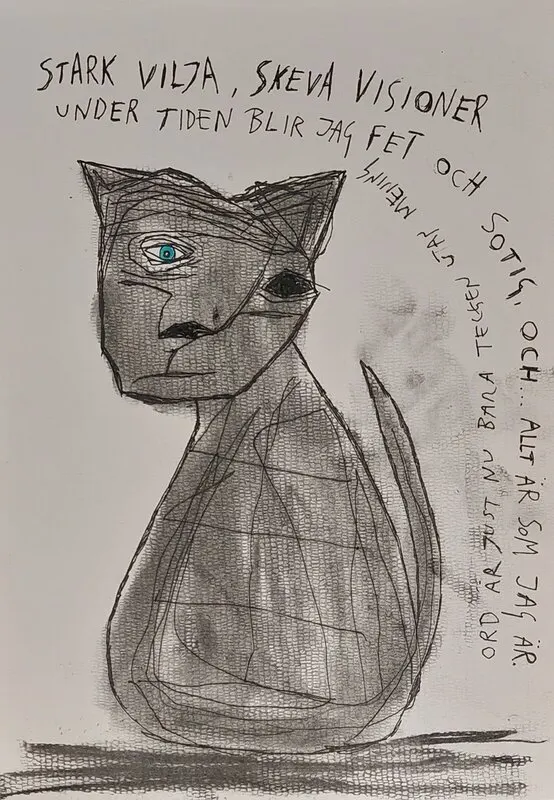 STARK VILJA, SKEVA VISIONER
UNDER TIDEN BLIR JAG FET OCH SOTIG, OCH... ALLT ÄR SOM JAG ÄR.
ORD ÄR JUST NU BARA TECKEN UTAN MENING